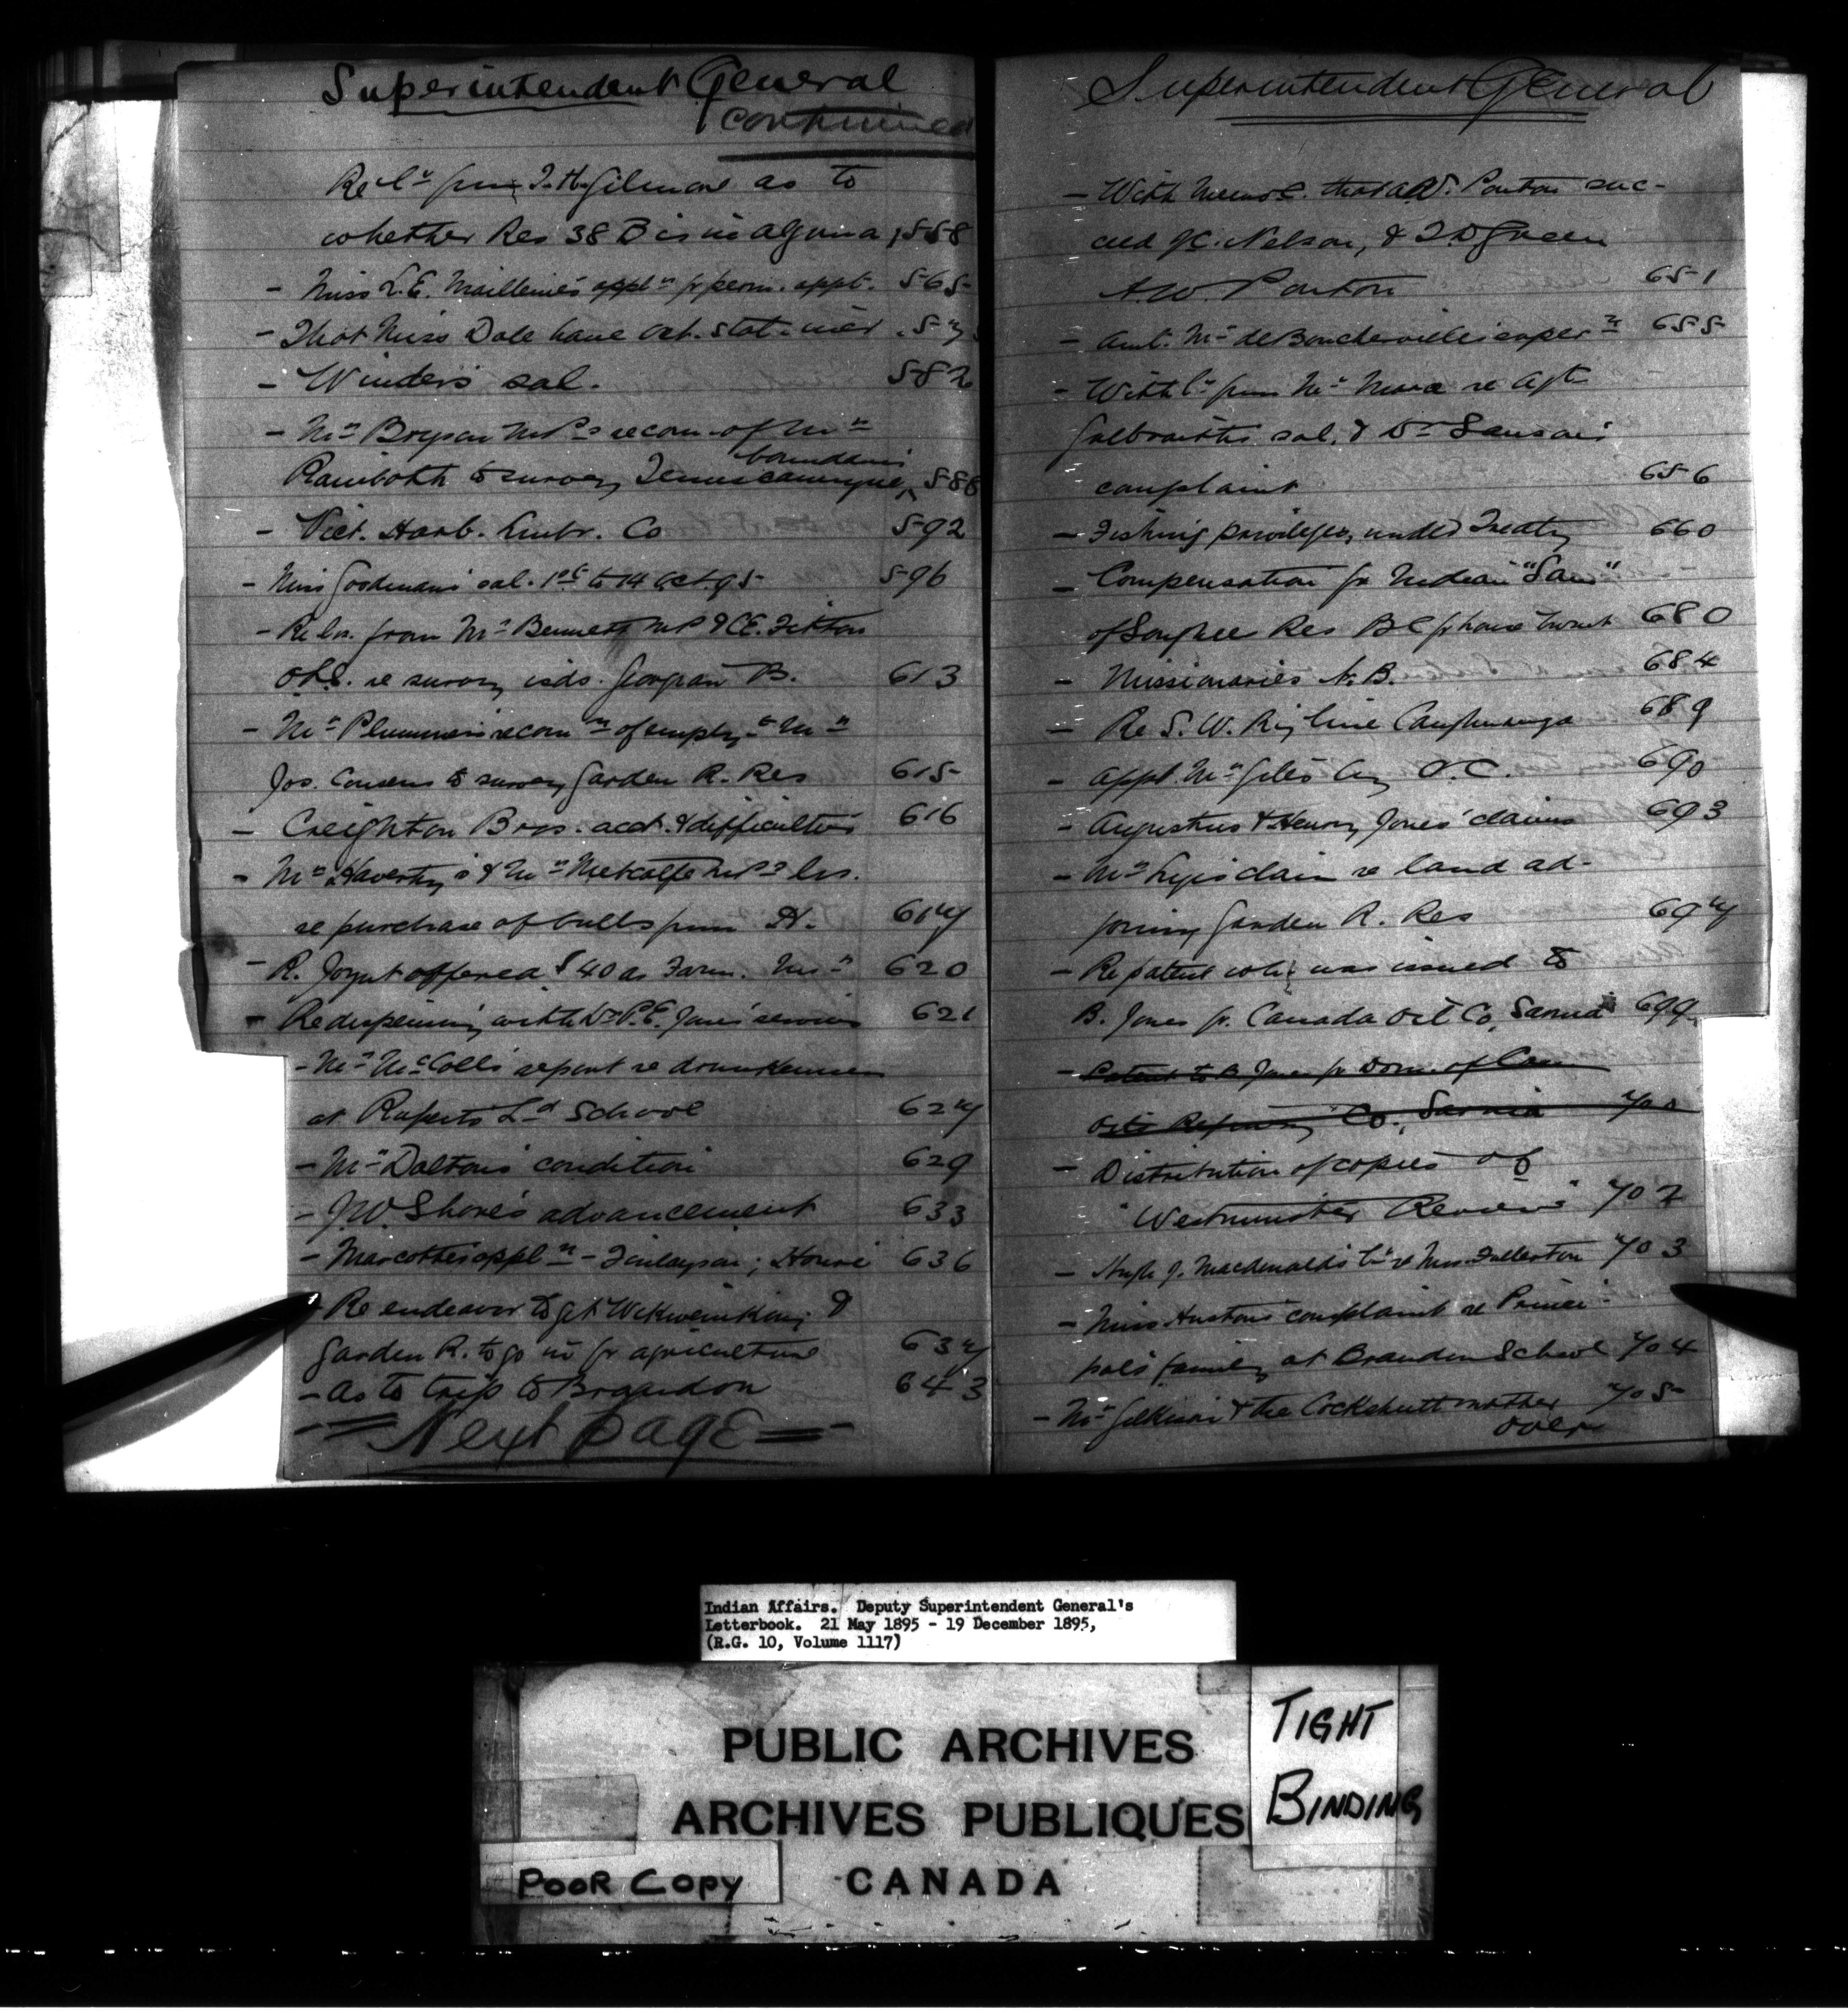 Superintendent General
continued
Re lr from J. H. Gilmore as to
whether Res 38 B is in Algoma 558
- Miss L.E. Maillene's appln fr perm. appt. 565
- That Miss Dale have
- Winder's sal. 582
- Mr Bryson MP's recom. of Mr
boundaries
Rainboth to survey Temiscamingue 588
- Vict. Harb. Lumbr. Co 592
- Miss Goodman's sal. 1st to 14 Oct 95 596
- Re lrs. from Mr Bennett MP & CE. Fitton
O.L.S. re survey islds. Georgian B. 613
- Mr Plummer's recomn of employt Mr
Jos. Cozens to survey Garden R. Res 615
- Creighton Bros. acct. & difficulties 616
- Mr Haverty's & Mr Metcalfe MP's lrs.
re purchase of bulls from H. 617
- R. Joynt offered $40 as Farm. Insr 620
- Re dispensing with Dr P.E. Jones' services 621
- Mr McColl's report re drunkenness
at Ruperts Ld School 627
- Mr Dalton's condition 629
- J.W. Shore's advancement 633
- Marcotte's appln - Finlayson; Howie 636
- Re endeavor to get Wekwemikong &
Garden R. to go in fr agriculture 637
- As to trip to Brandon 643
= Next Page =
Superintendent General
- With Memo that A.W. Ponton suc-
ceed J.C. Nelson, & T.D. Green
A.W. Ponton 651
- Amt. Mr de Boucherville's super 655
- With lr from Mr Mara re Agt
Galbraith's sal. & Dr Sanson's
complaint 656
- Fishing privileges, under Treaty 660
- Compensation fr Indian "Sam"
of Songhee Res BC fr house burnt 680
- Missionaries N.B. 684
- Re S. W. Ry line Caughnawaga 689
- Appt. Mr Giles by O.C. 690
- Augustus & Henry Jones' claims 693
- Mr claim re land ad-
joining Garden R. Res 697
- Re patent wh. was issued to
B. Jones fr. Canada Oil Co, Sarnia 699
- Patent to B Jones fr Dom. of Can
Oil Refining Co., Sarnia 700
- Distribution of copies of
"Westminster Review" 702
- Hugh J. Macdonald's lr re Mrs. Fullerton 703
- Miss Huston's complaint re Princi-
pal's family at Brandon School 704
- Mr Gilkison & the Cockshutt matter 705
over
Indian Affairs. Deputy Superintendent General's
Letterbook. 21 May 1895 - 19 December 1895,
(R.G. 10, Volume 1117)
PUBLIC ARCHIVES
ARCHIVES PUBLIQUES
CANADA
TIGHT
BINDING
POOR COPY